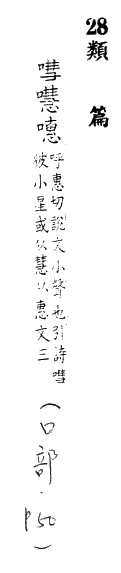 28類篇
嘒嚖噁
呼惠切說文小聲也引詩嘒
彼小星或从慧从惠文三
(口部·p50)